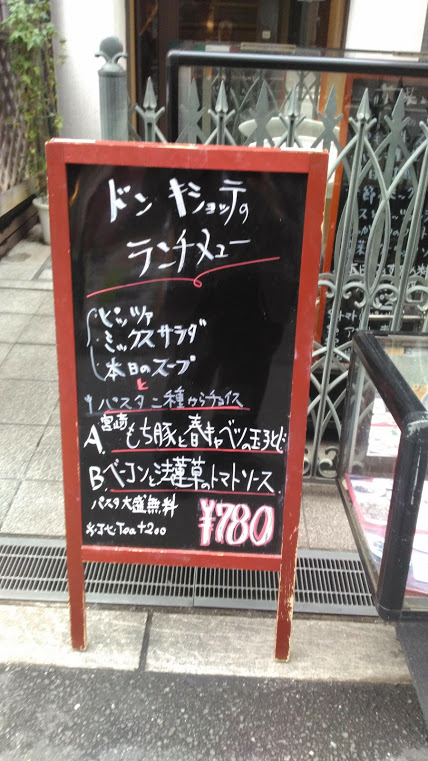 ドン キショッテの
ランチメニュー
ピッツァ
ミックスサラダ
本日のスープ
と
パスタ二種からチョイス
宮崎
A. もち豚と春キャベツの玉子とじ
B ベーコンと法蓮草のトマトソース
パスタ大盛無料
Tea +200
¥780